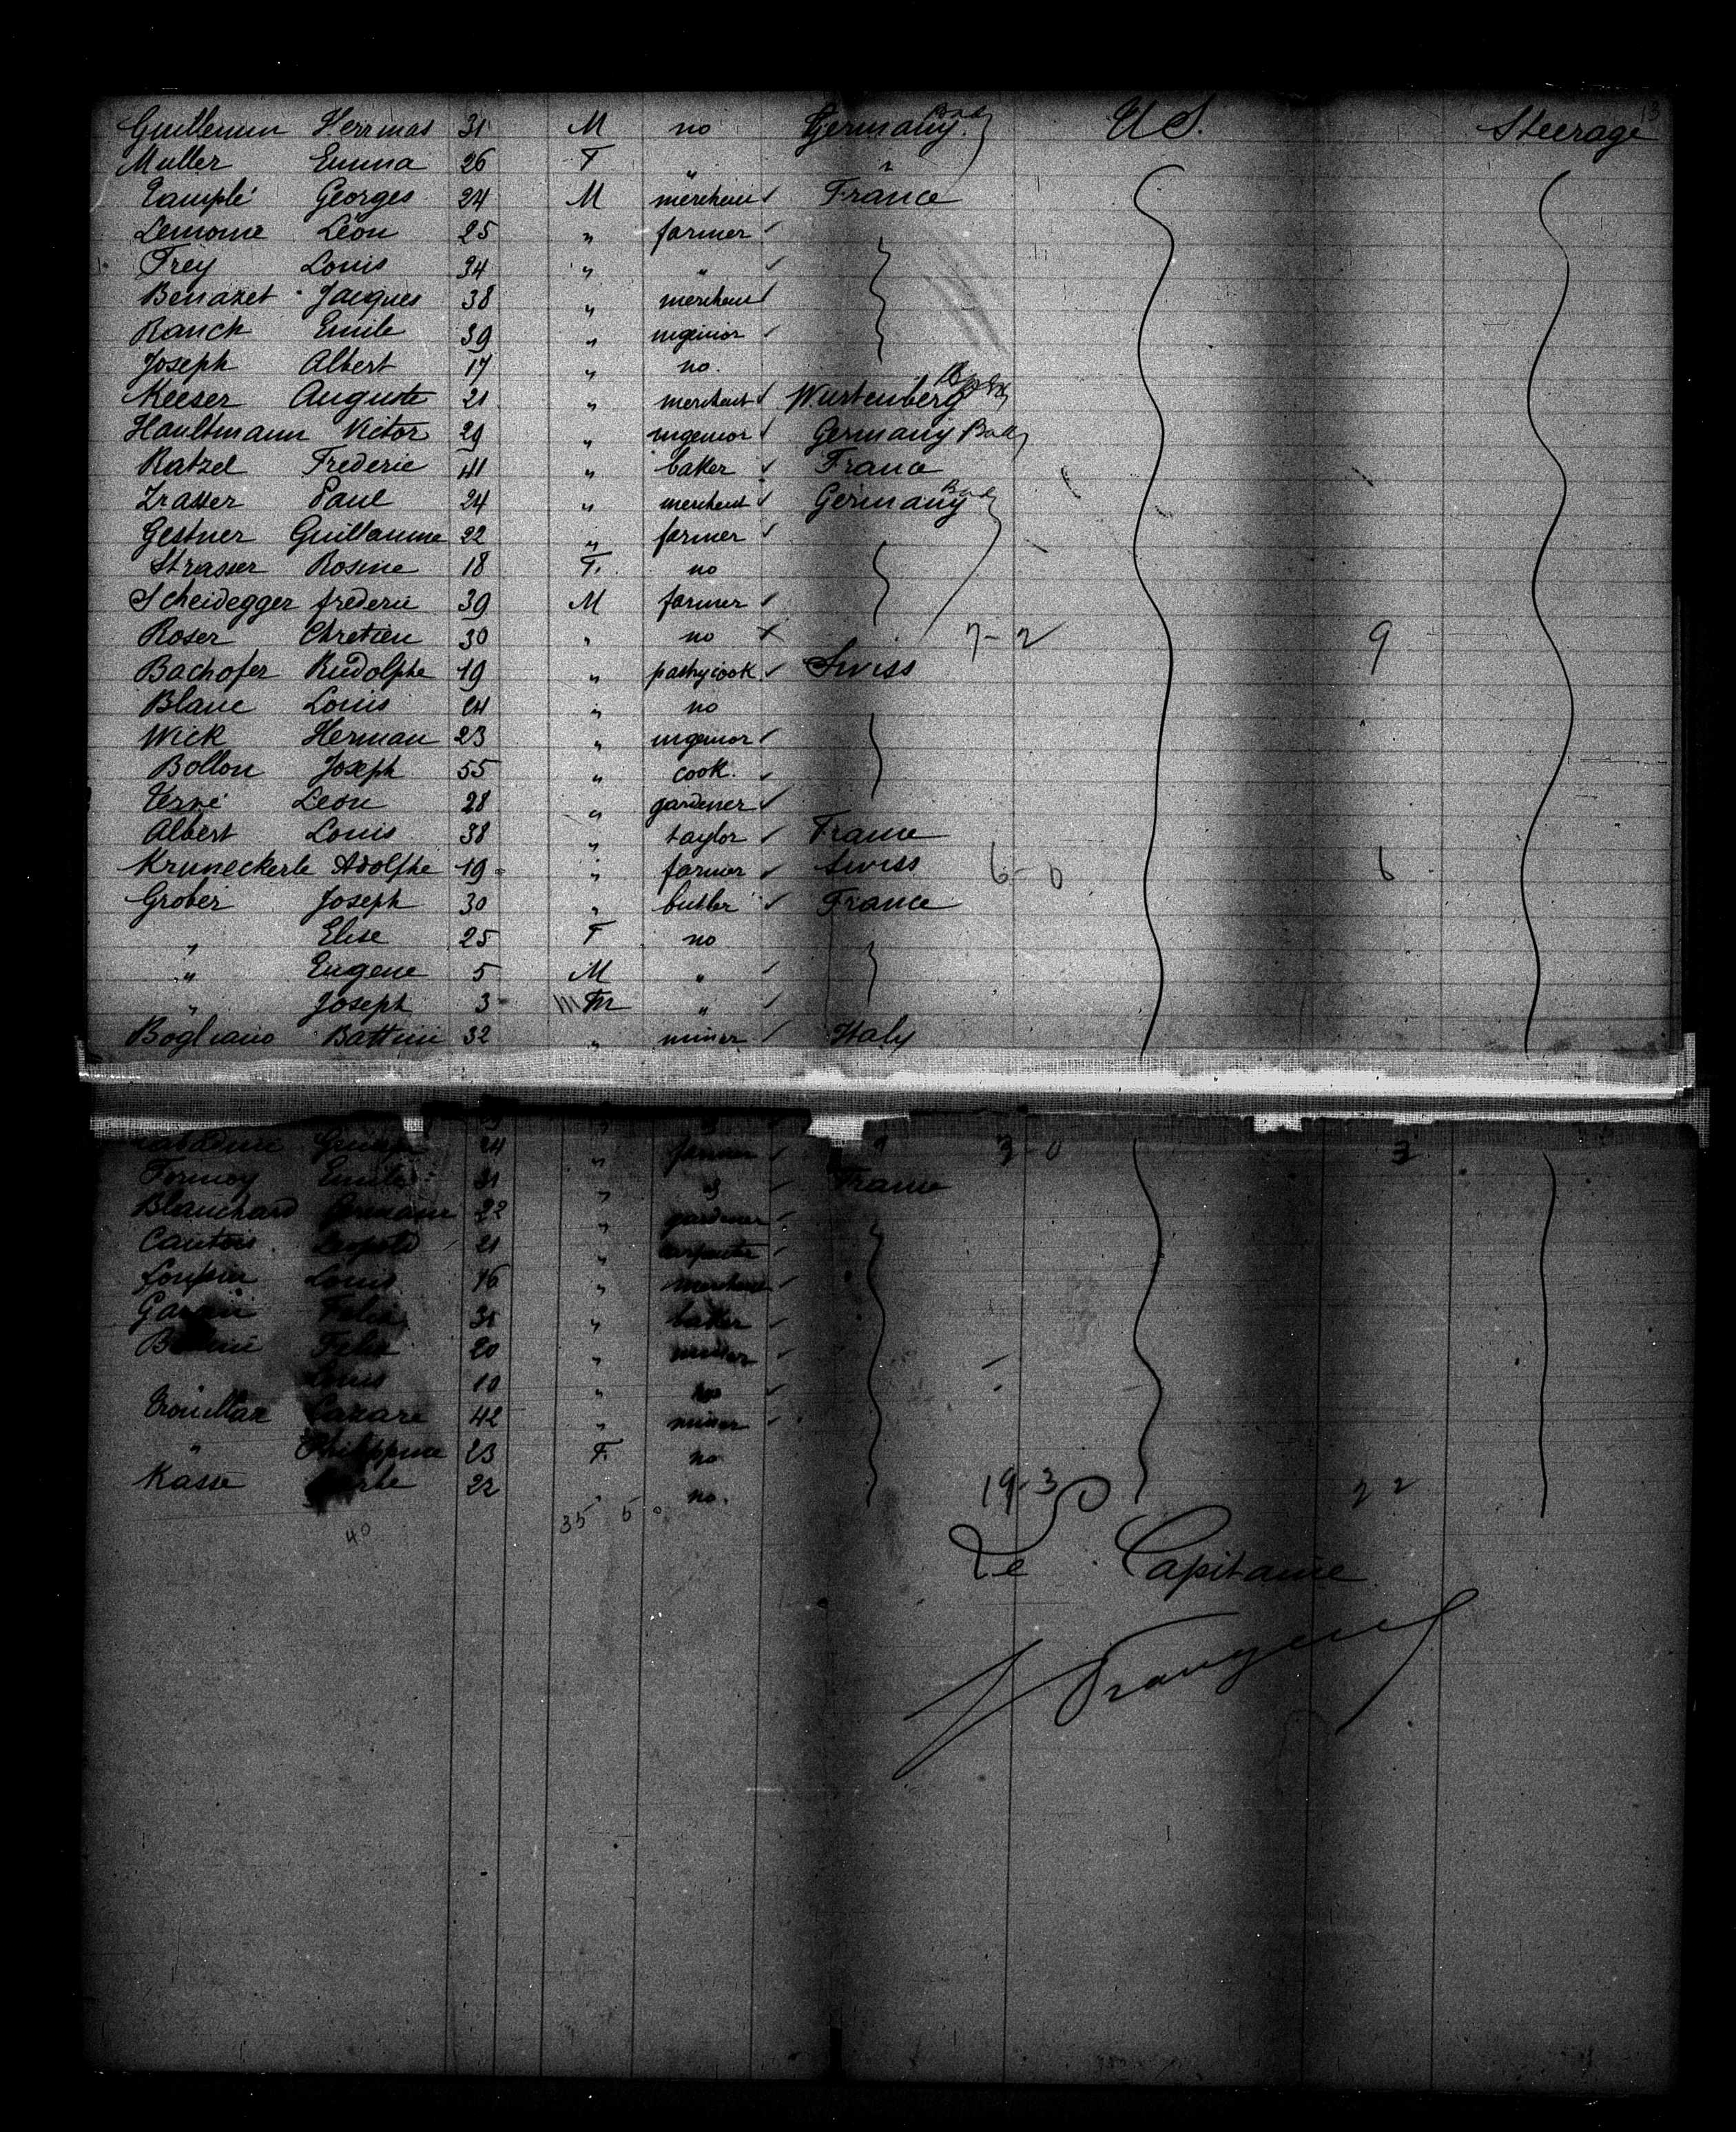 13
Guillemin Herrmas 31 M no Germany Bad U S. Steerage
Muller Emma 26 F " "
Georges 24 M France
Lemoine Léon 25 " farmer
Frey Louis 34 " "
Benazet Jacques 38 "
Ranch Emile 39 " ingenior
Joseph Albert 17 " no.
Keeser Auguste 21 " merchant Wurtenberg
Haultmann Victor 29 " ingenior Germany Bad
Ratzel Frederic 41 " baker France
Paul 24 " merchant Germany Bad
Gestner Guillaume 22 " farmer
Strasser Rosine 18 F. no
Scheidegger frederic 39 M farmer
Roser Chretien 30 " no 7-2 9
Bachofer Rudolphe 19 " pastrycook Swiss
Blanc Louis 24 " no
Wick Herman 23 " ingenior
Bollon Joseph 55 " cook.
Leon 28 " gardener
Albert Louis 38 " taylor France
Kruneckerle Adolphe 19 " farmer Swiss 6-0 6
Grober Joseph 30 " butler France
" Elise 25 F no
" Eugene 5 M "
" Joseph 3 M "
Bogliano 32 " miner Italy
24 " farmer " 3-0 3
Formoy Emile 31 " " France
Blanchard Germain 22 " gardener
Cantois Leopold 21 " carpenter
Louis 16 " merchant
Felix 31 " baker
Felix 20 "
Louis 10 " no
Lazare 42 " miner
" Philippine 23 F. no
Kasse 22 " no. 19-3 22
40 35 5 0
Le Capitaine